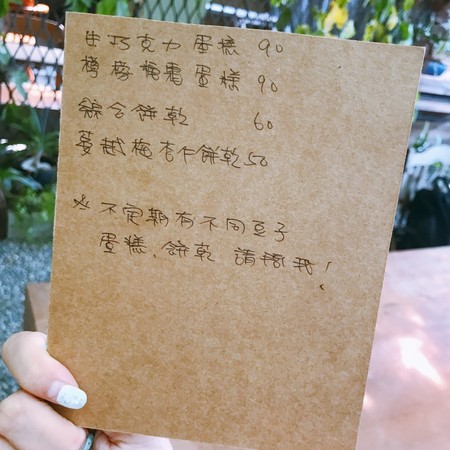 生巧克力蛋糕 90
檸檬糖霜蛋糕 90
綜合餅乾 60
蔓越梅杏仁餅乾 50
※不定期有不同豆子
蛋糕、餅乾 請搭我!